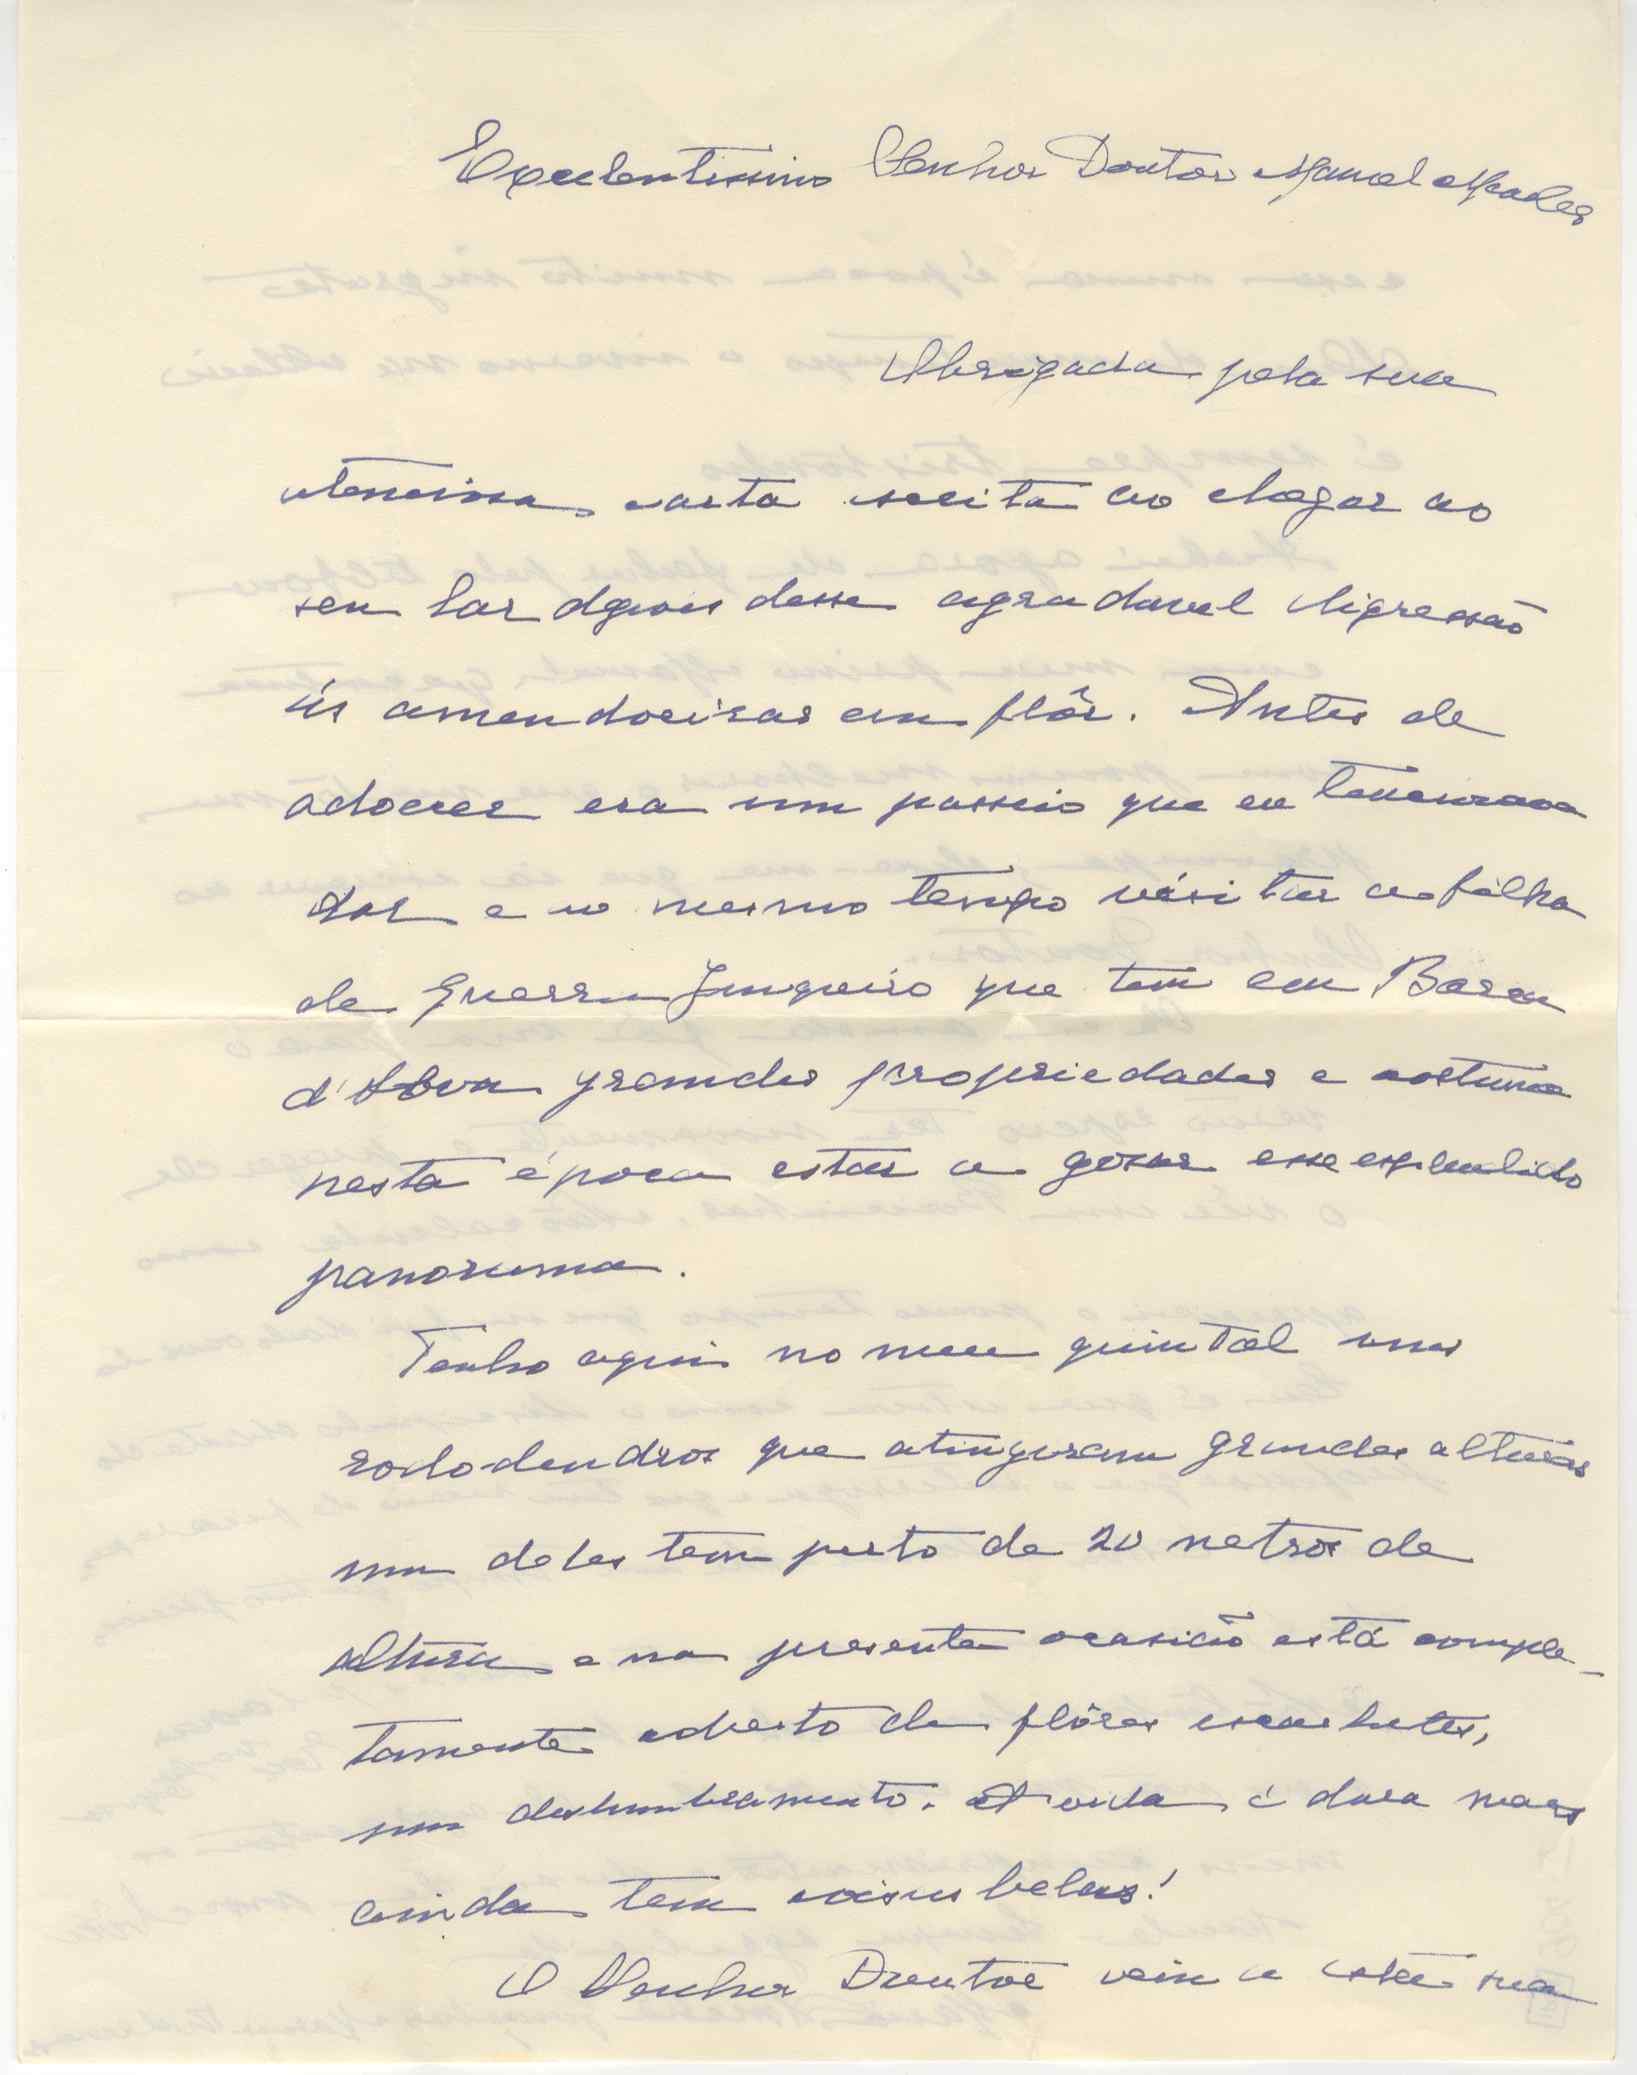 Excelentissimo Senhor Doutor Manoel Mendes
Obrigada pela sua
atenciosa carta escita ao chegar ao
seu lar depois dessa agradavel digressão
ás amendoeiras em flôr. Antes de
adoecer era um passeio que eu tencionava
dar e ao mesmo tempo vesitar a filha
de Guerra Junqueiro que tem em Barca
d'Alva grandes propriedades e costuma
nesta época estar a gozar esse esplendido
panorama.
Tenho aqui no meu quintal uns
rododendros que atingiram grandes alturas
um deles tem perto de 20 metros de
altura e na presente ocasião está comple-
tamente coberto de flôres escarlates,
um deslumbramento. A vida é dura mas
ainda tem coisas belas!
O Senhor Doutor veiu a esta sua